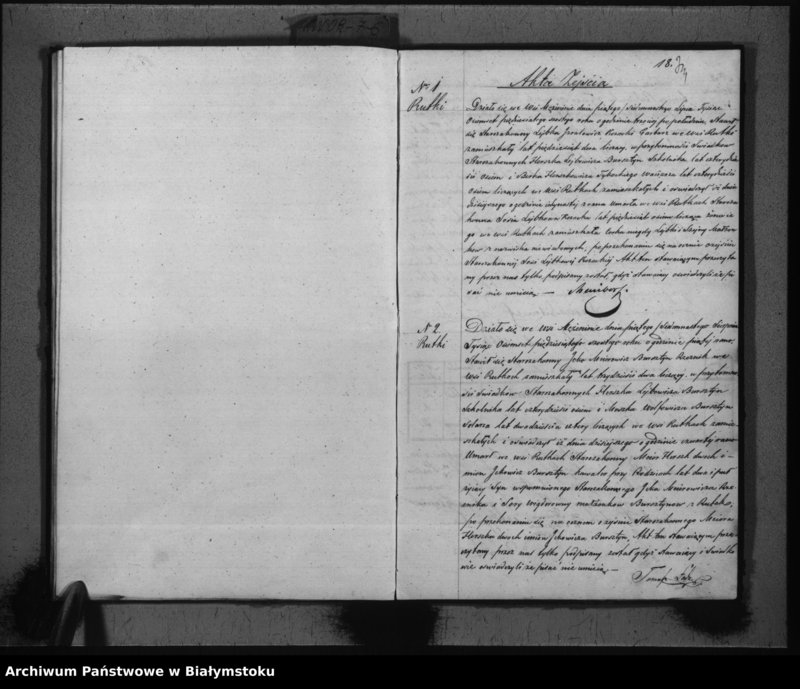 18.
Akta Zejścia
No 1
Rutki
Działo się we wsi Mężeninie dnia piątego/siedmnastego Lipca Tysiąc
Ośmset pięćdziesiątego szóstego roku o godzinie trzeciej po południu, Stawił
się Starozakonny Lejbka we wsi Rutki
zamieszkały lat pięćdziesiąt dwa liczący, w przytomności Świadków
Starozakonnych Herszka Lejbowicza Bursztyn Szkolnika lat czterdzie-
ści ośm i Berka Herszkowicza lat czterdzieści
ośm liczących we wsi Rutkach zamieszkałych i oświadczył iż dnia
dzisiejszego o godzinie z rana umarła we wsi Rutkach Staroza-
konna lat pięćdziesiąt ośm licząca żona je-
go we wsi Rutkach zamieszkała córka niegdy Lejbki i Małżon-
ków z nazwiska niewiadomych, po przekonaniu się naocznie o zejściu
Starozakonnej Akt ten stawającym przeczyta-
ny przez nas tylko podpisany został, gdyż stawający oświadczyli iż pi-
sać nie umieją. —
No 2
Rutki
Działo się we wsi Mężeninie dnia piątego/siedmnastego Sierpnia
Tysiąc Ośmset pięćdziesiątego szóstego roku o godzinie piątej rano,
Stawił się Starozakonny Jcko Mniorowicz Bursztyn we
wsi Rutkach zamieszkały lat trzydzieści dwa liczący, w przytomno-
ści Świadków Starozakonnych Herszka Lejbowicza Bursztyn
Szkolnika lat czterdzieści ośm i Moszka Wolfowicza Bursztyn
lat dwadzieścia cztery liczących we wsi Rutkach zamie-
szkałych i oświadczył iż dnia dzisiejszego o godzinie czwartej rano
Umarł we wsi Rutkach Starozakonny Mnior Hersch dwóch i-
mion Jckowicz Bursztyn kawaler przy Rodzicach lat dwa i pół
żyjący Syn wspomnionego Starozakonnego Jcka Mniorowicza
i Sory małżonków Bursztynów z Rutek,
po przekonaniu się naocznem o zejściu Starozakonnego Mniora
Herszka dwóch imion Jckowicza Bursztyn, Akt ten stawającym prze-
czytany przez nas tylko podpisany został gdyż stawający i Świadko-
wie oświadczyli że pisać nie umieją. —
Archiwum Państwowe w Białymstoku